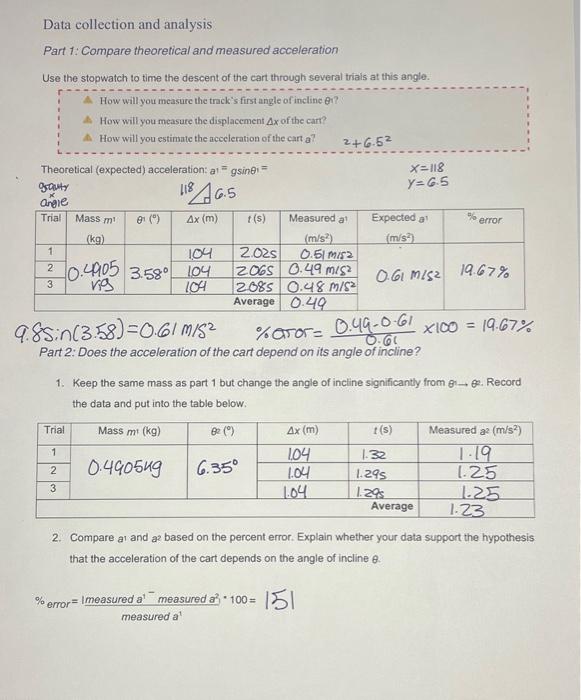 Data collection and analysis
Part 1: Compare theoretical and measured acceleration
Use the stopwatch to time the descent of the cart through several trials at this angle.
How will you measure the track's first angle of incline θ1?
How will you measure the displacement Δx of the cart?
How will you estimate the acceleration of the cart a?
2+6.5²
Theoretical (expected) acceleration: a1 = gsinθ1 =
x=118
y=6.5
gravity
x
angle
118 6.5
Trial Mass m1 (kg) θ1 (°) Δx (m) t (s) Measured a1 (m/s²) Expected a1 (m/s²) % error
1 104 2.02s 0.51 m/s2
2 0.4905 kg 3.58° 104 2.06s 0.49 m/s² 0.61 m/s2 19.67%
3 104 2.08s 0.48 m/s²
Average 0.49
9.8sin(3.58)=0.61 m/s²
%error= 0.49-0.61 x100 = 19.67%
0.61
Part 2: Does the acceleration of the cart depend on its angle of incline?
1. Keep the same mass as part 1 but change the angle of incline significantly from θ1→ θ2. Record
the data and put into the table below.
Trial Mass m1 (kg) θ2 (°) Δx (m) t (s) Measured a2 (m/s²)
1 1.04 1.32 1.19
2 0.4905kg 6.35° 1.04 1.29s 1.25
3 1.04 1.29s 1.25
Average 1.23
2. Compare a1 and a2 based on the percent error. Explain whether your data support the hypothesis
that the acceleration of the cart depends on the angle of incline θ.
% error= |measured a1 - measured a2| * 100= 151
measured a1